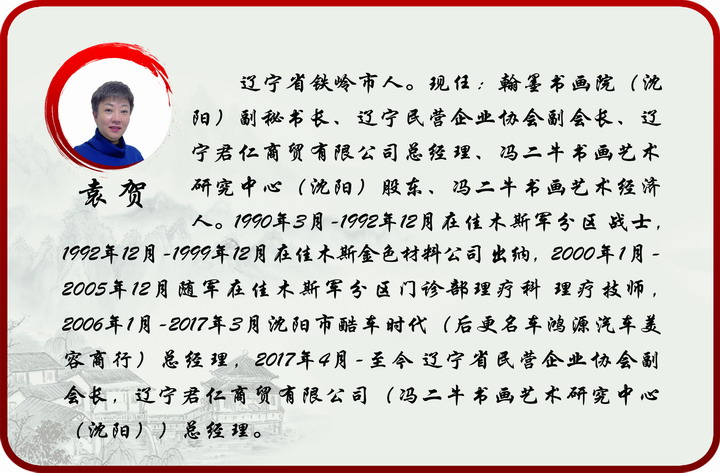 辽宁省铁岭市人。现任：翰墨书画院（沈
阳）副秘书长、辽宁民营企业协会副会长、辽
宁君仁商贸有限公司总经理、冯二牛书画艺术
研究中心（沈阳）股东、冯二牛书画艺术经济
人。1990年3月-1992年12月在佳木斯军分区 战士，
1992年12月-1999年12月在佳木斯金色材料公司 出纳，2000年1月-
2005年12月随军在佳木斯军分区门诊部理疗科 理疗技师，
2006年1月-2017年3月沈阳市酷车时代（后更名车鸿源汽车美
容商行）总经理，2017年4月-至今 辽宁省民营企业协会副
会长，辽宁君仁商贸有限公司（冯二牛书画艺术研究中心
（沈阳））总经理。
袁贺